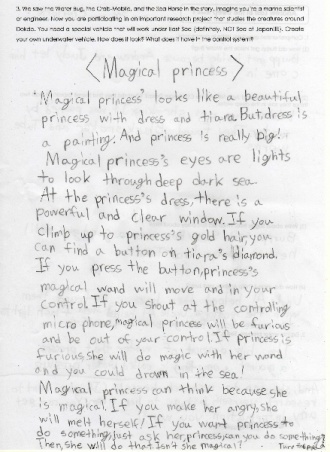 3. We saw the Water Bug, the Crab-Mobile, and the Sea Horse in the story. Imagine you're a marine scientist
or engineer. Now you are participating in an important research project that studies the creatures around
Dokdo. You need a special vehicle that will work under East Sea (definitely, NOT Sea of Japan!!!). Create
your own underwater vehicle. How does it look? What does it have in the control system?
<Magical princess>
'Magical princess' looks like a beautiful
princess with dress and tiara. But dress is
a painting. And princess is really big!
Magical princess's eyes are lights
to look through deep dark sea.
At the princess's dress, there is a
powerful and clear window. If you
climb up to princess's gold hair, you
can find a button on tiara's diamond.
If you press the button, princess's
magical wand will move and in your
control. If you shout at the controlling
micro phone, magical princess will be furious
and be out of your control. If princess is
furious, she will do magic with her wand
and you could drown in the sea!
Magical princess can think because she
is magical. If you make her angry, she
will melt herself! If you want princess to
do something, just ask her, princess, can you do something?
Then, she will do that. Isn't she magical?